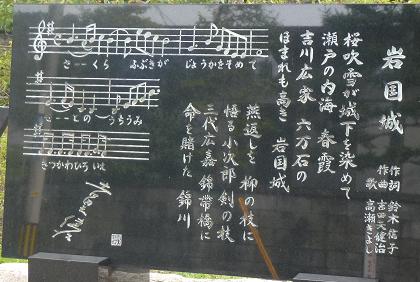 岩国城
作詞 鈴木信子
作曲 吉田天健治
歌 高瀬きよし
桜吹雪が城下を染めて
瀬戸の内海 春霞
吉川広家 六万石の
ほまれも高き 岩国城
燕返しを 柳の枝に
悟る小次郎 剣の技
三代広嘉 錦帯橋に
命を賭けた 錦川
さーくら ふぶきが じょうかをそめて
せーとの うちうみ
きつかわひろ いえ